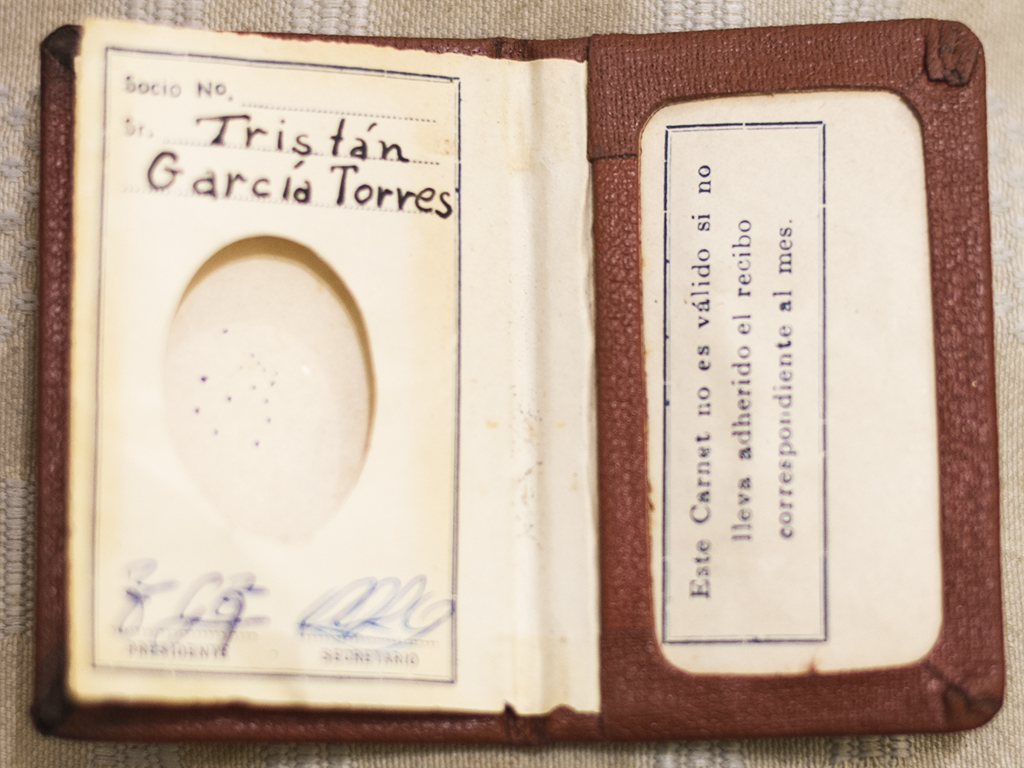 Socio Nº.
Sr. Tristán
García Torres
PRESIDENTE
SECRETARIO
Este Carnet no es válido si no
lleva adherido el recibo
correspondiente al mes.